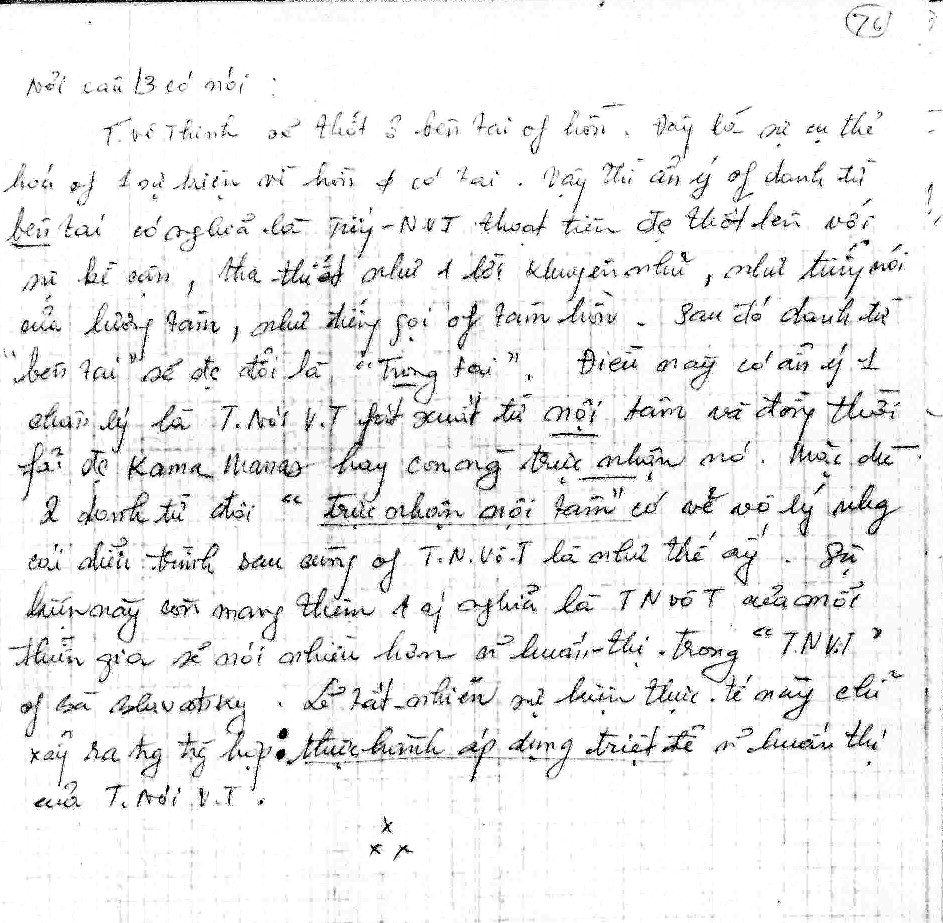 76
Nơi câu 13 có nói :
T. vô Thinh sẽ thốt 3 bên tai of hồn. Đây là sự cụ thể
hoá of 1 sự kiện vì hồn có tai. Vậy thì ẩn ý of danh từ
bên tai có nghĩa là Tiếng-NVT thoạt tiên đc thốt lên với
sự kề cận, tha thiết như 1 lời khuyên nhủ, như tiếng nói
của lương tâm, như tiếng gọi of tâm hồn. Sau đó danh từ
"bên tai" sẽ đc đổi là "Trong tai". Điều này có ẩn ý 1
chân lý là T. Nói V.T fát xuất từ nội tâm và đồng thời
fải đc Kama Manas hay con ng trực nhận nó. Mặc dù
2 danh từ đôi "trực nhận nội tâm" có vẻ vô lý nhg
cái diễn trình sau cùng of T.N.Vô.T là như thế ấy. Sự
kiện này còn mang thêm 1 ý nghĩa là TN vô T của mỗi
thiền gia sẽ nói nhiều hơn n~ huấn-thị trong "T.NV.T"
of bà Blavatsky. Lẽ tất-nhiên sự kiện thực-tế này chỉ
xảy ra tg tg hợp : thực hành áp dụng triệt để n~ huấn thị
của T. Nói V.T.
x
x x